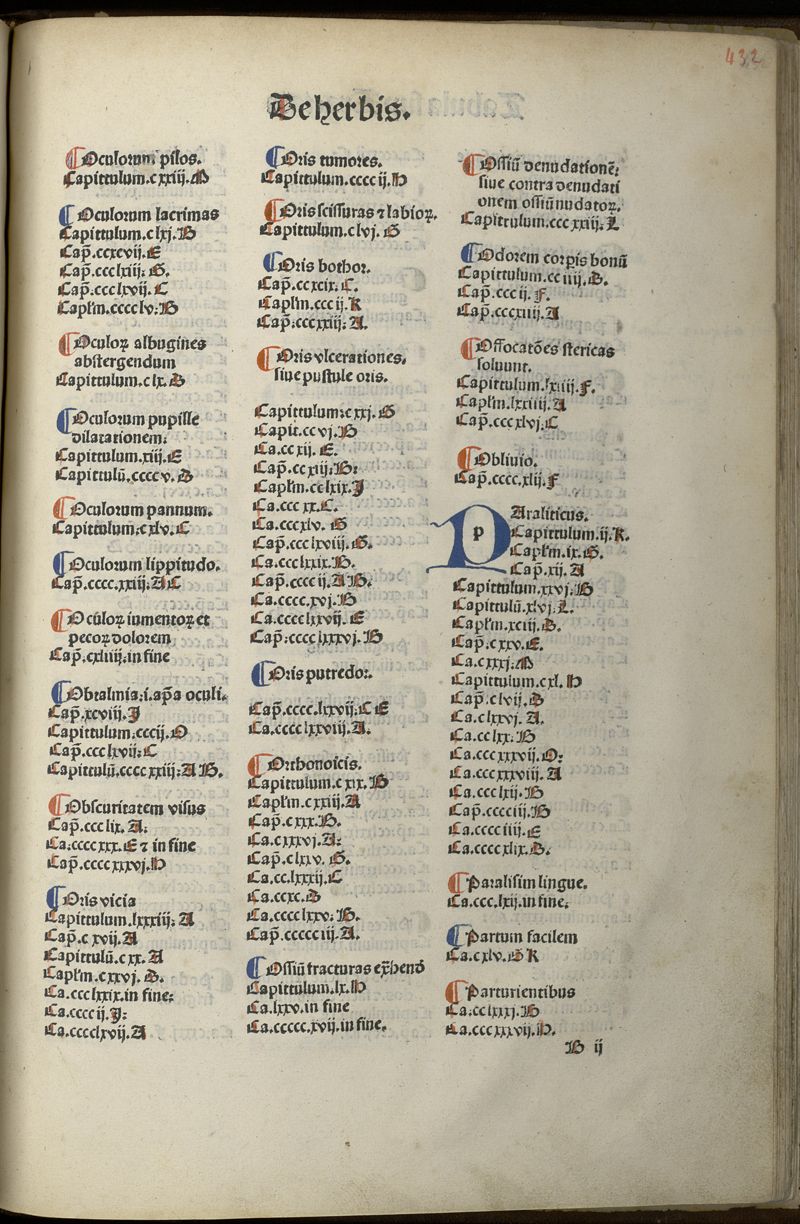 432
De herbis.
Oculorum pilos.
Capittulum.cxxiij.M
Oculorum lacrimas
Capittulum.clxj.B
Cap̃.ccxcvij.E
Cap̃.ccclxiij.G.
Cap̃.ccclxvij.C
Capl'm.cccclv.B
Oculoꝝ albugines
abstergendum
Capittulum.clx.D
Oculorum pupille
dilatationem.
Capittulum.xiij.E
Capittulū.cccc v.D
Oculorum pannum.
Capittulum.cxlv.C
Oculorum lippitudo.
Cap̃.cccc.xxiij.A C
Oculoꝝ iumentoꝝ et
pecoꝝ dolorem
Cap̃.cxliiij.in fine
Obtalmia.i.ap̃a oculi.
Cap̃.xcviij.J
Capittulum.cccij.O
Cap̃.ccc lxvij.C
Capittulū.ccccxxiij.A B.
Obscuritatem visus
Cap̃.ccc lix.A.
Ca.cccc xxx.E ⁊ in fine
Cap̃.ccccxxxvj.H
Oris vicia
Capittulum.lxxxiij.A
Cap̃.c xvij.A
Capittulū.c xx.A
Capl'm.c xxvj.D.
Ca.ccc lxxix.in fine.
Ca.cccc ij.J.
Ca.cccclxvij.A
Oris tumores.
Capittulum.cccc ij.H
Oris scissuras ⁊ labioꝝ.
Capittulum.clvj.G
Oris bothor.
Cap̃.cc xcix.C.
Capl'm.ccc ij.K
Cap̃.cccxxiij.A.
Oris vlcerationes.
siue pustule oris.
Capittulum.cxxj.G
Capit.cc vj.B
Ca.cc xij.E.
Cap̃.cc xiij.B.
Capl'm.cc lxix.J
Ca.ccc xx.C.
Ca.cccxlv.G
Cap̃.ccc lxviij.G.
Ca.ccc lxxix.B.
Cap̃.cccc ij.A B.
Ca.cccc.xvj.B
Ca.cccclxxvij.E
Cap̃.cccc lxxxvj.B
Oris putredor.
Cap̃.cccc.lxxvij.C E
Ca.cccc lxxviij.A.
Orthonoicis.
Capittulum.c xix.B
Capl'm.c xxiij.A
Cap̃.c xxx.B.
Ca.c xxxvj.A.
Cap̃.c lxxv.G.
Ca.cc.lxxxij.C
Ca.ccxc.D
Ca.cccc lxxv.B.
Cap̃.ccccc iij.A.
Ossiū fracturas exhend̃
Capittulum.lx.H
Ca.lxxv.in fine
Ca.ccccc.xvij.in fine.
Ossiū denudationē.
siue contra denudati
onem ossiū nudatoꝝ.
Capittulum.ccc xxiij.L
Odorem corꝑis bonū
Capittulum.cc iiij.D.
Cap̃.ccc ij.F.
Cap̃.cccxiiij.A
Offocatōes stericas
soluunt.
Capittulum.lxiiij.F.
Capl'm.lxxiiij.A
Cap̃.ccc xlvj.C
Obliuio.
Cap̃.cccc.xlij.F
p
PAraliticus.
Capittulum.ij.K.
Capl'm.ix.G.
Cap̃.xij.A
Capittulum.xxvj.B
Capittulū.xlvj.L.
Capl'm.xciij.D.
Cap̃.c xxv.E.
Ca.c xxxj.M
Capittulum.c xl.H
Cap̃.c lvij.D
Ca.c lxxvj.A.
Ca.cc lxx.B
Ca.ccc xxxvij.O.
Ca.ccc xxxviij.A
Ca.ccc lxij.B
Cap̃.cccciij.B
Ca.cccc iiij.E
Ca.cccc xlix.D.
Paralisim lingue.
Ca.ccc.lxij.in fine.
Partum facilem
Ca.c xlv.D K
Parturientibus
Ca.cc lxxxj.B
Ca.ccc xxxvij.H.
B ij